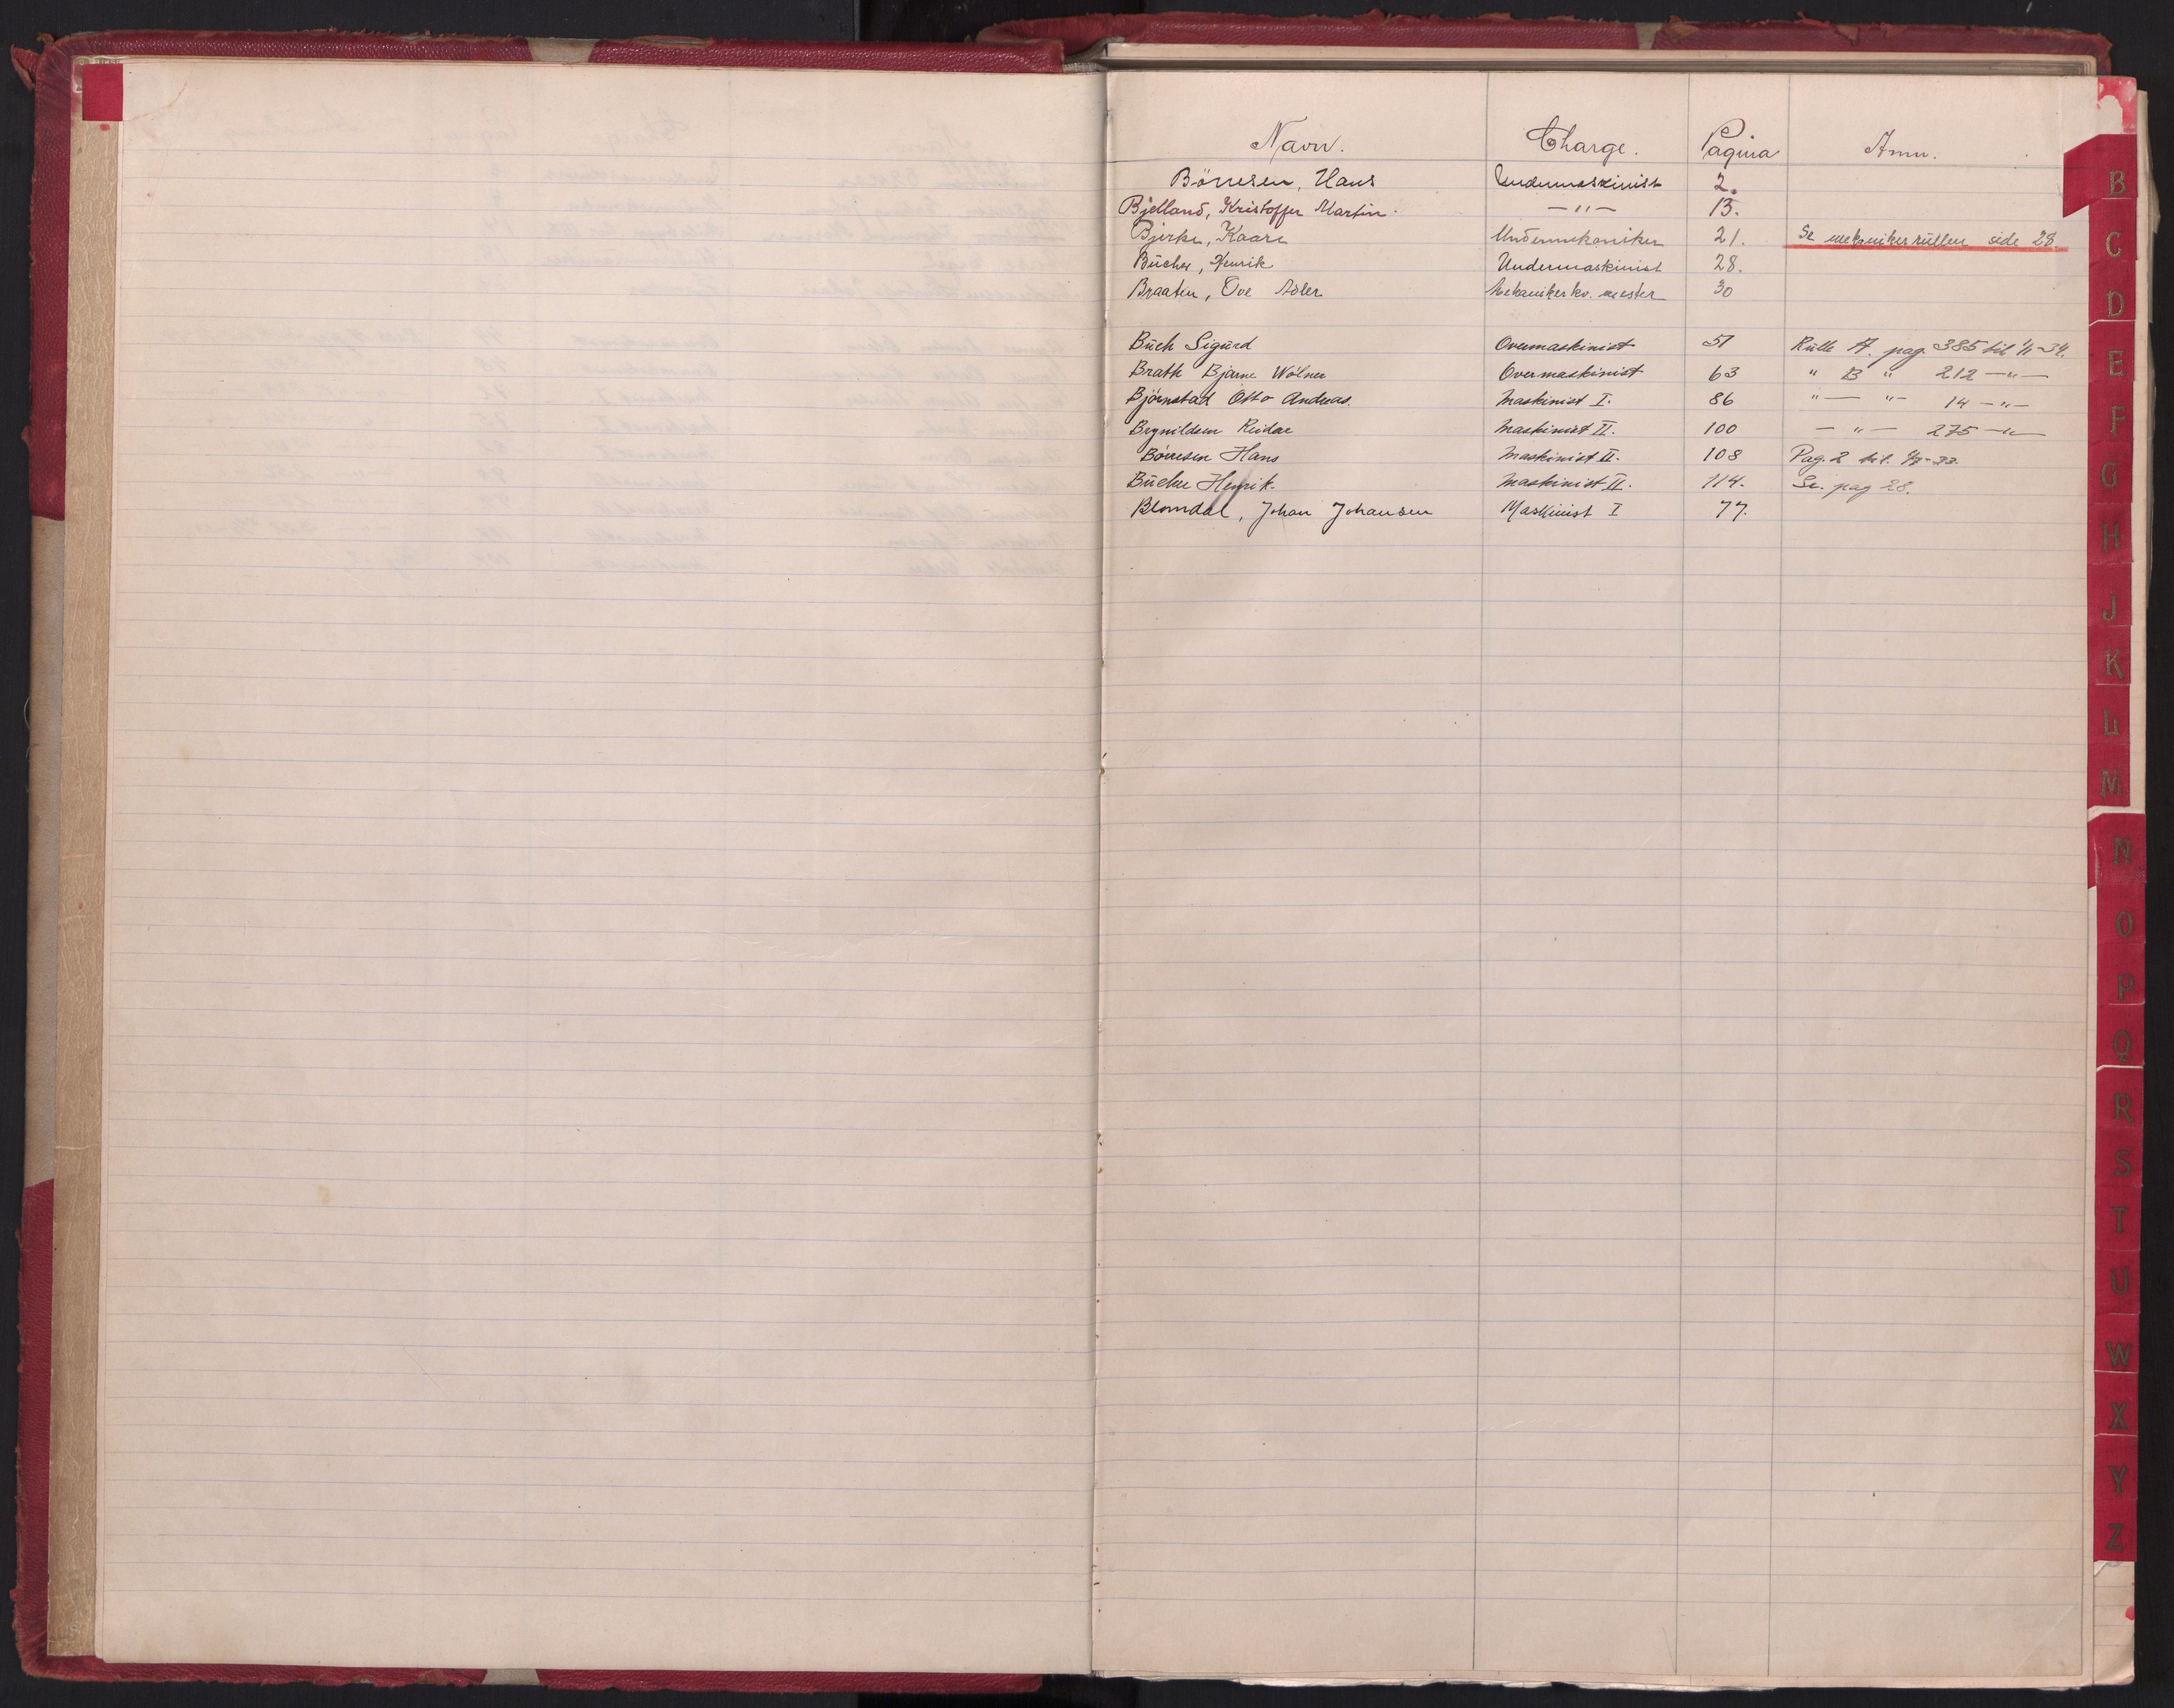 Navn. Charge. Pagina Anm.
Börresen, Hans Undermaskinist 2.
Bjelland, Kristoffer Martin. —"— 13.
Bjerke, Kaare Undermekaniker 21. Se mekanikerrullen side 28
Bücher, Henrik Undermaskinist 28.
Braaten, Ove Adler Mekanikerkv. mester 30
Buch Sigurd Overmaskinist 51 Rulle A. pag. 385 til 1/11-34.
Brath Bjarne Wölner Overmaskinist 63 " B " 212 —"—
Björnstad Otto Andreas. Maskinist I. 86 "— "— 14 —"—
Brynildsen Reidar Maskinist II. 100 —"— 275 —"—
Börresen Hans Maskinist II. 108 Pag. 2 til
Bücher Henrik. Maskinist II. 114. Se. pag 28.
Blomdal, Johan Johansen Maskinist I 77.
B
C
D
E
F
G
H
J
K
L
M
N
O
P
Q
R
S
T
U
W
X
Y
Z